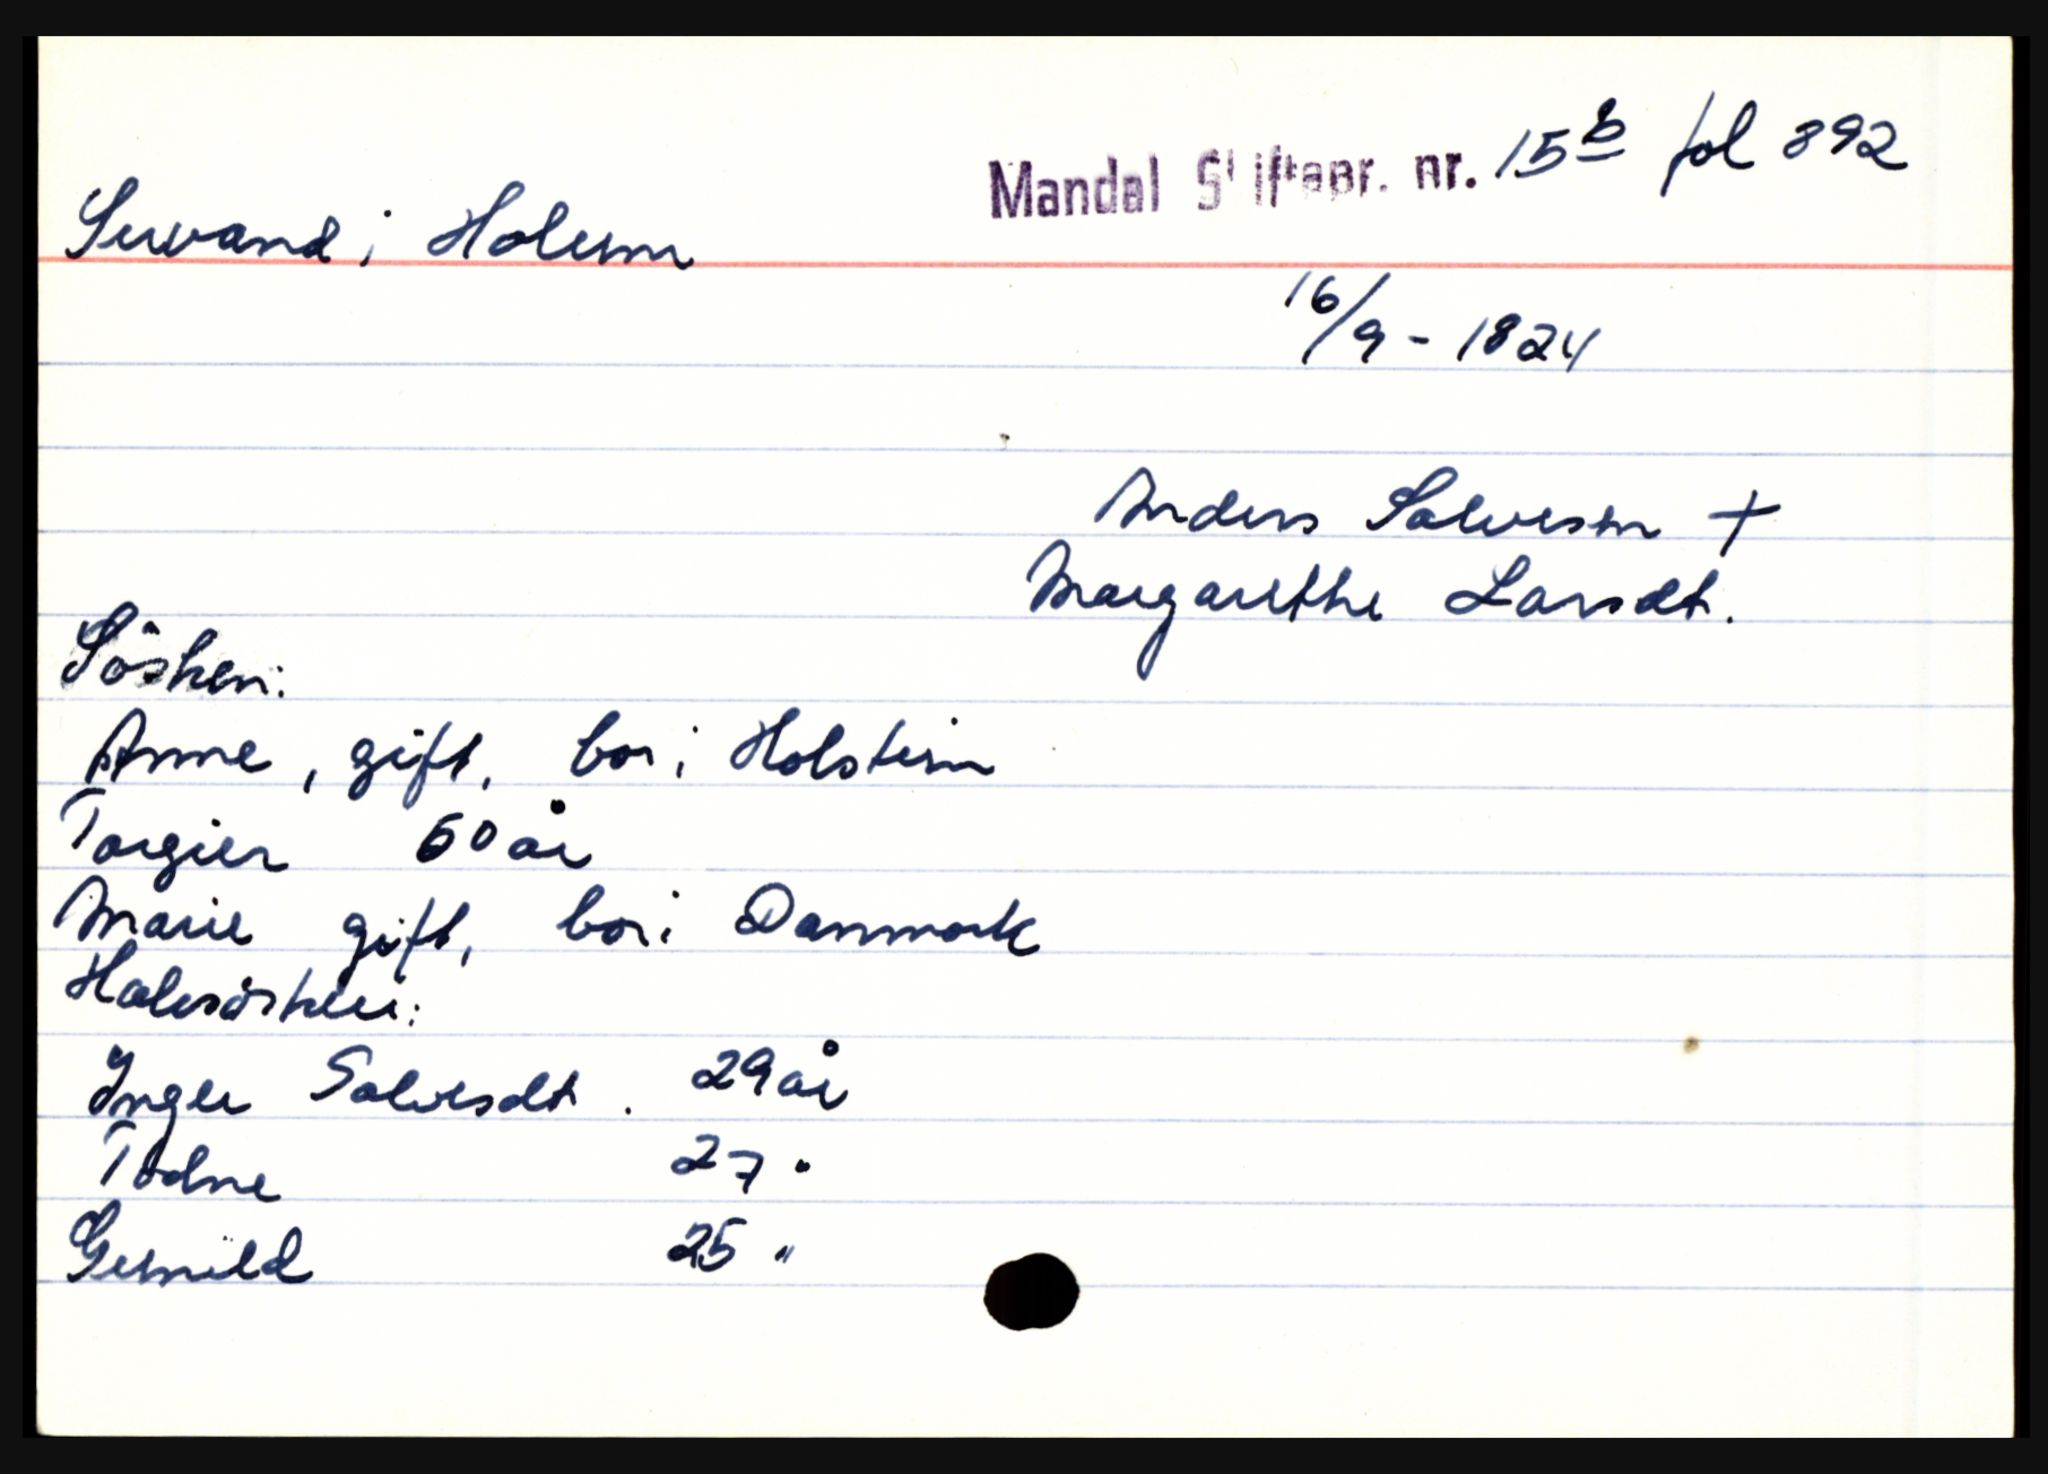 Mandal Skiftepr. nr. 15 b fol 892
Suvand i Holum
16/9 - 1824
Anders Salvesen +
Margarethe Larsdt.
Sösken:
Anne, gift, bor i Holstein
Torgier 60 år
Marie gift, bor i Danmark
Halvsösken:
Inger Salvesdt. 29 år
Todne 27 "
Gunild 25 "